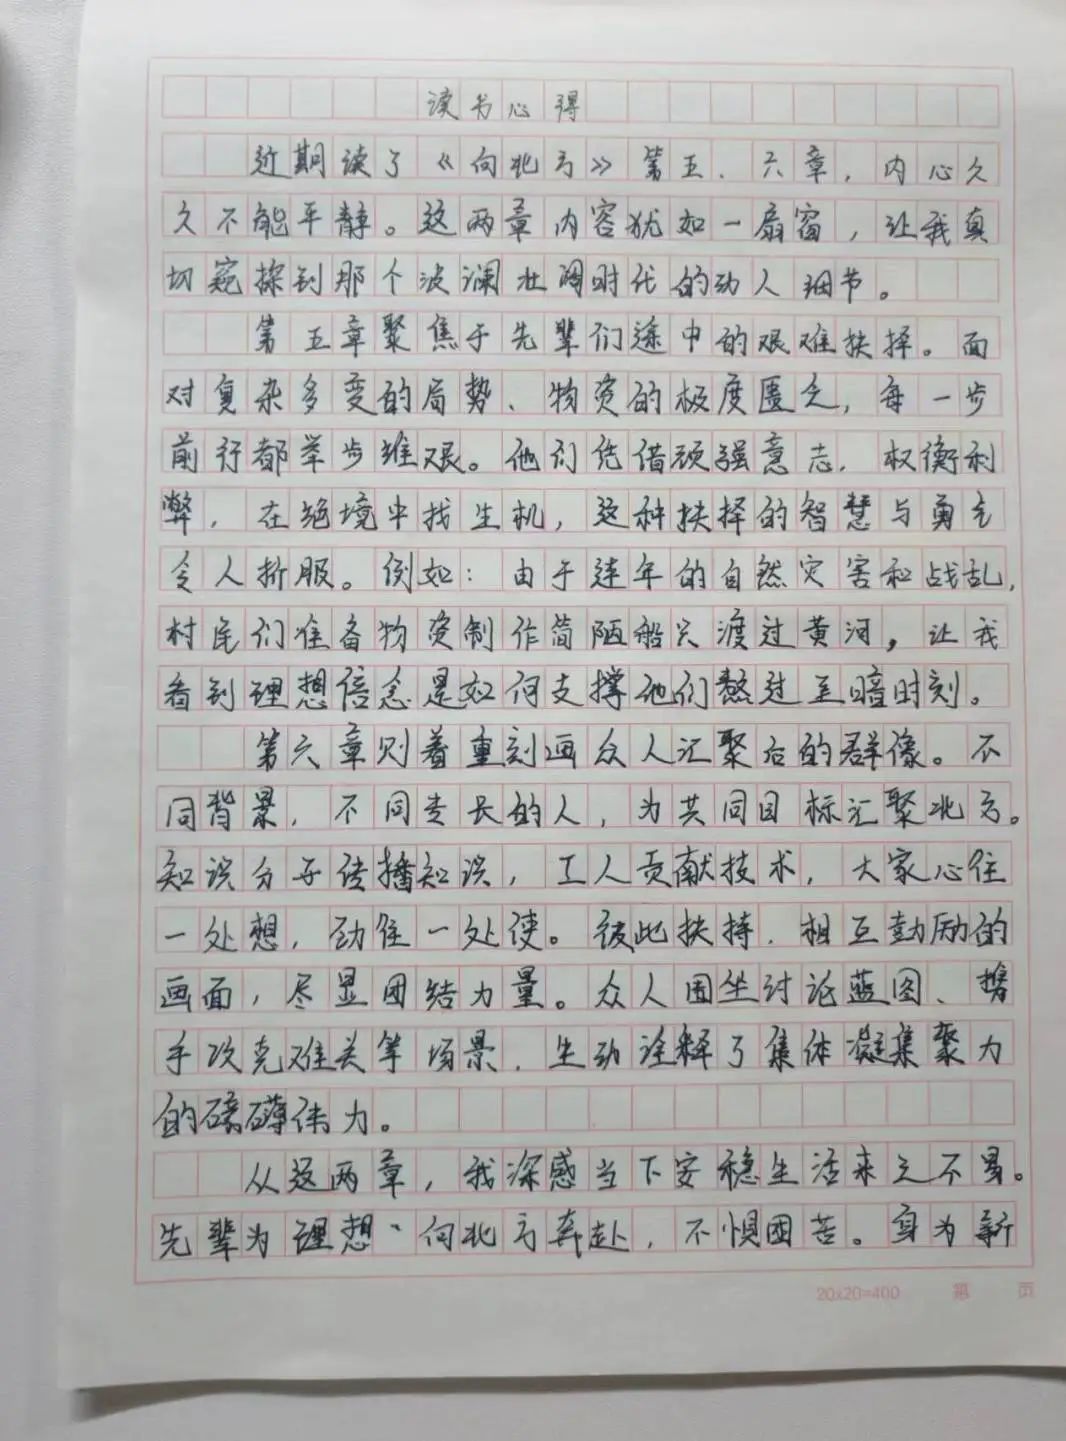 读书心得
近期读了《向北方》第五、六章，内心久
久不能平静。这两章内容犹如一扇窗，让我真
切窥探到那个波澜壮阔时代的动人细节。
第五章聚焦于先辈们途中的艰难抉择。面
对复杂多变的局势、物资的极度匮乏，每一步
前行都举步维艰。他们凭借顽强意志，权衡利
弊，在绝境中找生机，这种抉择的智慧与勇气
令人折服。例如：由于连年的自然灾害和战乱，
村民们准备物资制作简陋船只渡过黄河，让我
看到理想信念是如何支撑他们熬过至暗时刻。
第六章则着重刻画众人汇聚后的群像。不
同背景，不同专长的人，为共同目标汇聚北方。
知识分子传播知识，工人贡献技术，大家心往
一处想，劲往一处使。彼此扶持，相互鼓励的
画面，尽显团结力量。众人围坐讨论蓝图、携
手攻克难关等场景，生动诠释了集体凝集聚力
的磅礴伟力。
从这两章，我深感当下安稳生活来之不易。
先辈为理想、向北方奔赴，不惧困苦。身为新
20x20=400 第 页